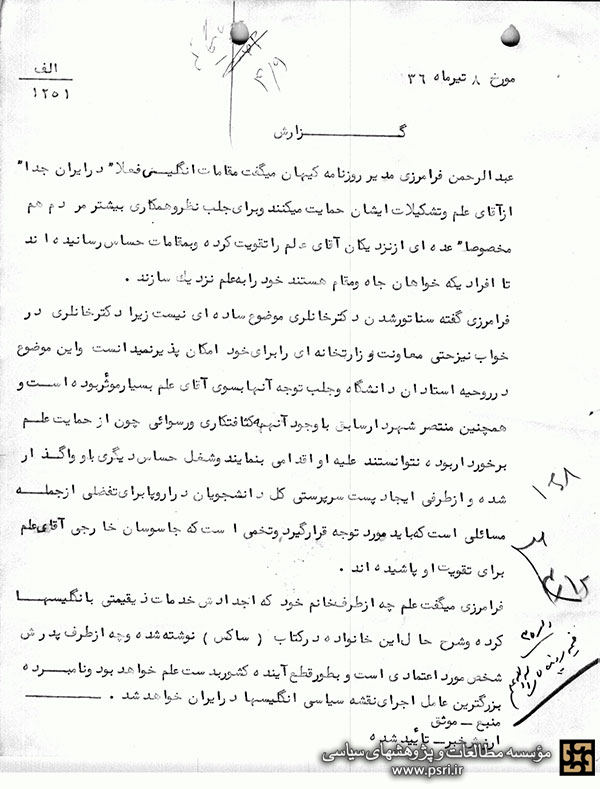 الف
۱۲۵۱
مورخ ۸ تیرماه ۳۶
گـــــــــزارش
عبدالرحمن فرامرزی مدیر روزنامه کیهان میگفت مقامات انگلیسی فعلا" درایران جدا"
ازآقای علم وتشکیلات ایشان حمایت میکنند وبرای جلب نظروهمکاری بیشتر مردم هم
مخصوصا" عده ای ازنزدیکان آقای علم راتقویت کرده وبمقامات حساس رسانیده اند
تا افرادیکه خواهان جاه ومقام هستند خود رابه علم نزدیك سازند .
فرامرزی گفته سناتورشدن دکترخانلری موضوع ساده ای نیست زیرا دکترخانلری در
خواب نیزحتی معاونت وزارتخانه ای رابرای خود امکان پذیرنمیدانست واین موضوع
درروحیه استادان دانشگاه وجلب توجه آنها بسوی آقای علم بسیارموثربوده است و
همچنین منتصر شهردارسابق باوجود آنهمه کثافتکاری ورسوائی چون از حمایت علم
برخورداربوده نتوانستند علیه او اقدامی بنمایند وشغل حساس دیگری باو واگذار
شده وازطرفی ایجاد پست سرپرستی کل دانشجویان دراروپا برای تفضلی ازجمله
مسائلی است که باید مورد توجه قرارگیرد وتخمی است که جاسوسان خارجی آقای علم
برای تقویت او پاشیده اند .
فرامرزی میگفت علم چه ازطرف خانم خود که اجدادش خدمات ذیقیمتی بانگلیسها
کرده وشرح حال این خانواده درکتاب ( ساکس ) نوشته شده وچه ازطرف پدرش
شخص مورد اعتمادی است و بطورقطع آینده کشوربدست علم خواهد بود ونامبرده
بزرگترین عامل اجرای نقشه سیاسی انگلیسها درایران خواهد شد .
منبع ــ موثق
ارزش خبر ــ تأیید شده
مؤسسه مطالعات و پژوهشهای سیاسی
www.psri.ir